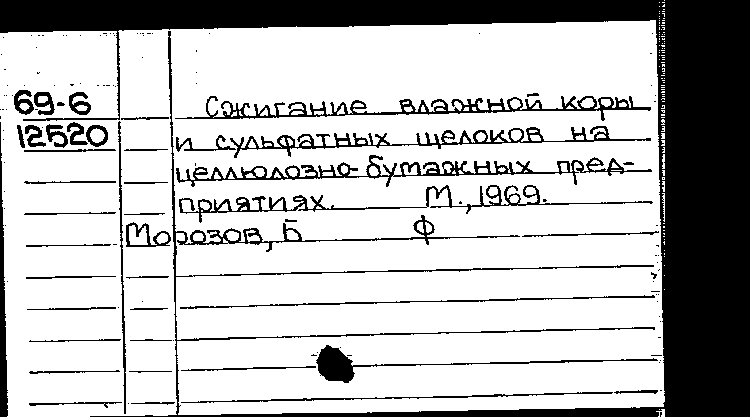 69-6 Сжигание влажной коры
12520 и сульфатных щелоков на
целлюлозно-бумажных пред-
приятиях. М., 1969.
Морозов, Б Ф